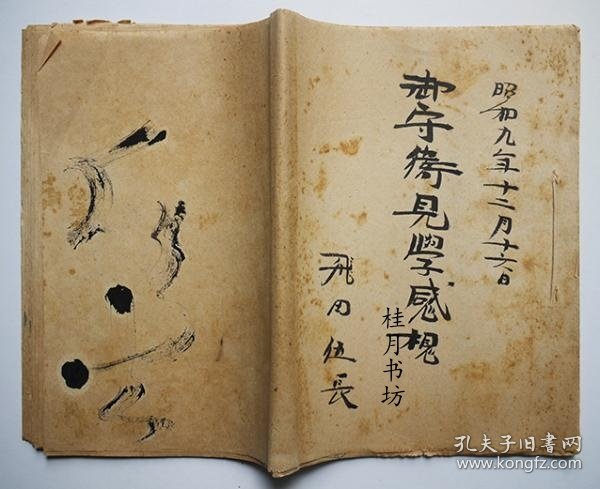 昭和九年十二月十六日
御守衛見學感想
飛田伍長
桂月书坊
孔夫子旧書网
www.kongfz.com